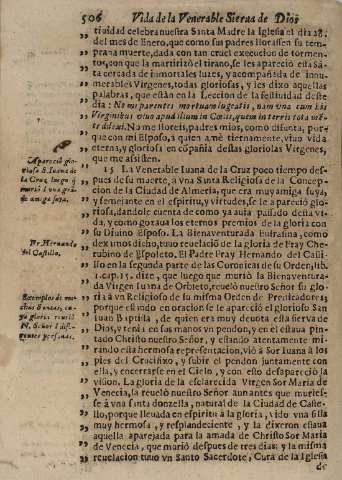 506 Vida de la Venerable Sierua de Dios
tiuidad celebra nuestra Santa Madre la Iglesia el dia 28.
del mes de Enero, que como sus padres llorassen su tem-
prana muerte, dada con tan cruel execucion de tormen-
tos, con que la martirizò el tirano, se les apareciò esta Sã-
ta cercada de inmortales luzes, y acompañada de innu-
merables Virgenes, todas gloriosas, y les dixo aquellas
palabras, que estàn en la Leccion de la festiuidad deste
dia: No me parentes mortuam lugeatis, nam vna cum his
Virginibus viuo apud illum in Cœlis, quem in terris tota mẽ-
te dilexi. No me lloreis, padres mios, como difunta, por-
que con mi Esposo, a quien amè tiernamente, viuo vida
eterna, y gloriosa en cõpañia destas gloriosas Virgenes,
que me assisten.
Apareciò glo-
riosa S. Iuana de
la Cruz, luego q̃
muriò à vna grã-
de amiga suya.
15 La Venerable Iuana de la Cruz poco tiempo des-
pues de su muerte, a vna Santa Religiosa de la Concep-
cion de la Ciudad de Almeria, que era muy amiga suya,
y semejante en el espiritu, y virtudes, se le apareciò glo-
riosa, dandole cuenta de como ya auia passado desta vi-
da, y como gozaua los eternos premios de la gloria con
su Diuino Esposo. La Bienauenturada Eufrasina, como
dexamos dicho, tuuo reuelaciõ de la gloria de Fray Che-
rubino de Espoleto. El Padre Fray Hernando del Casti-
llo en la segunda parte de las Coronicas de su Orden, lib.
1. cap. 15. dize, que luego que muriò la Bienauentura-
da Virgen Iuana de Orbieto, reuelò nuestro Señor su glo-
ria à vn Religioso de su misma Orden de Predicadores;
Fr. Hernando
del Castillo.
Exemplos de mu-
chas Santas, cu-
ya gloria reuelò
N. Señor à dife-
rentes personas.
porque estando en oracion se le apareciò el glorioso San
Iuan Baptista, de quien era muy deuota esta sierua de
Dios, y tenia en sus manos vn pendon, y en èl estaua pin-
tado Christo nuestro Señor, y estando atentamente mi-
rando esta hermosa representacion, viò à Sor Iuana à los
pies del Crucifixo, y subir el pendon juntamente con
ella, y encerrarse en el Cielo, y con esto desapareciò la
vision. La gloria de la esclarecida Virgen Sor Maria de
Venecia, la reuelò nuestro Señor aun antes que muries-
se à vna santa donzella, natural de la Ciudad de Caste-
llo, porque lleuada en espiritu à la gloria, vido vna silla
muy hermosa, y resplandeciente, y la dixeron estaua
aquella aparejada para la amada de Christo Sor Maria
de Venecia, que muriò despues de tres dias; y la misma
reuelacion tuuo vn Santo Sacerdote, Cura de la Iglesia
de